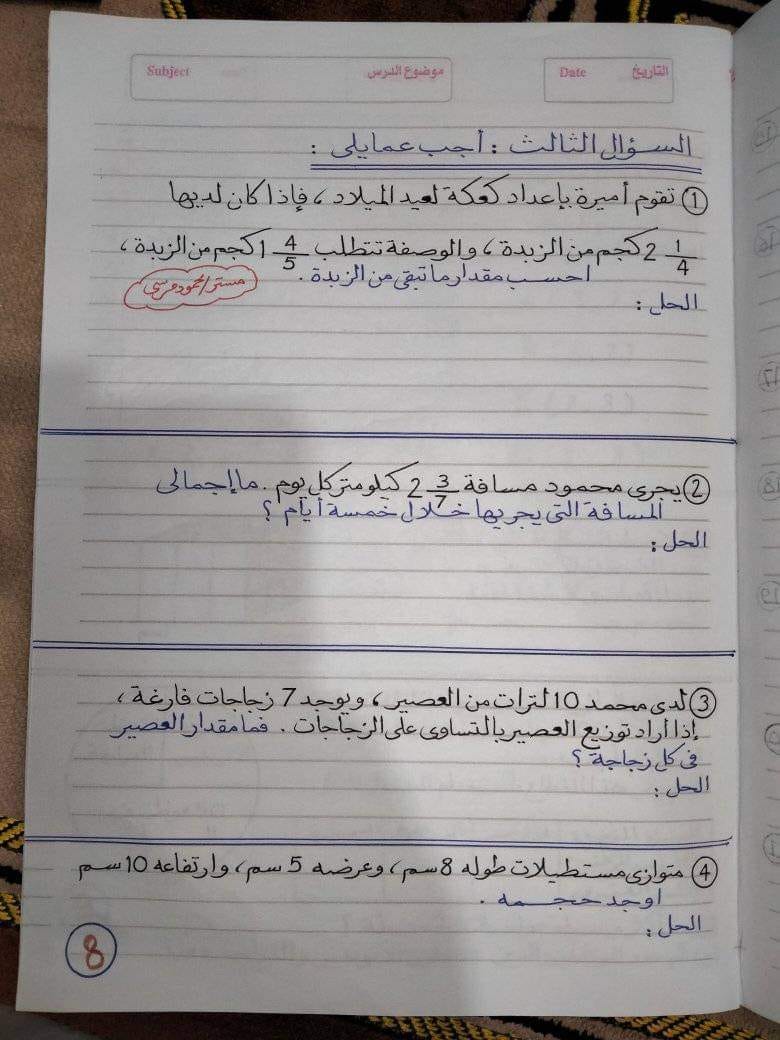 Subject موضوع الدرس Date التاريخ
السؤال الثالث : أجب عمايلى :
① تقوم أميرة بإعداد كعكة لعيد الميلاد ، فإذا كان لديها
2 1/4 كجم من الزبدة ، والوصفة تتطلب 1 4/5 كجم من الزبدة ،
احسب مقدار ما تبقى من الزبدة .
مستر/محمود مرسى
الحل :
② يجرى محمود مسافة 2 3/7 كيلومتر كل يوم . ما إجمالى
المسافة التى يجريها خلال خمسة أيام ؟
الحل :
③ لدى محمد 10 لترات من العصير ، ويوجد 7 زجاجات فارغة ،
إذا أراد توزيع العصير بالتساوى على الزجاجات . فما مقدار العصير
فى كل زجاجة ؟
الحل :
④ متوازى مستطيلات طوله 8 سم ، وعرضه 5 سم ، وارتفاعه 10 سم
اوجد حجمه .
الحل :
8